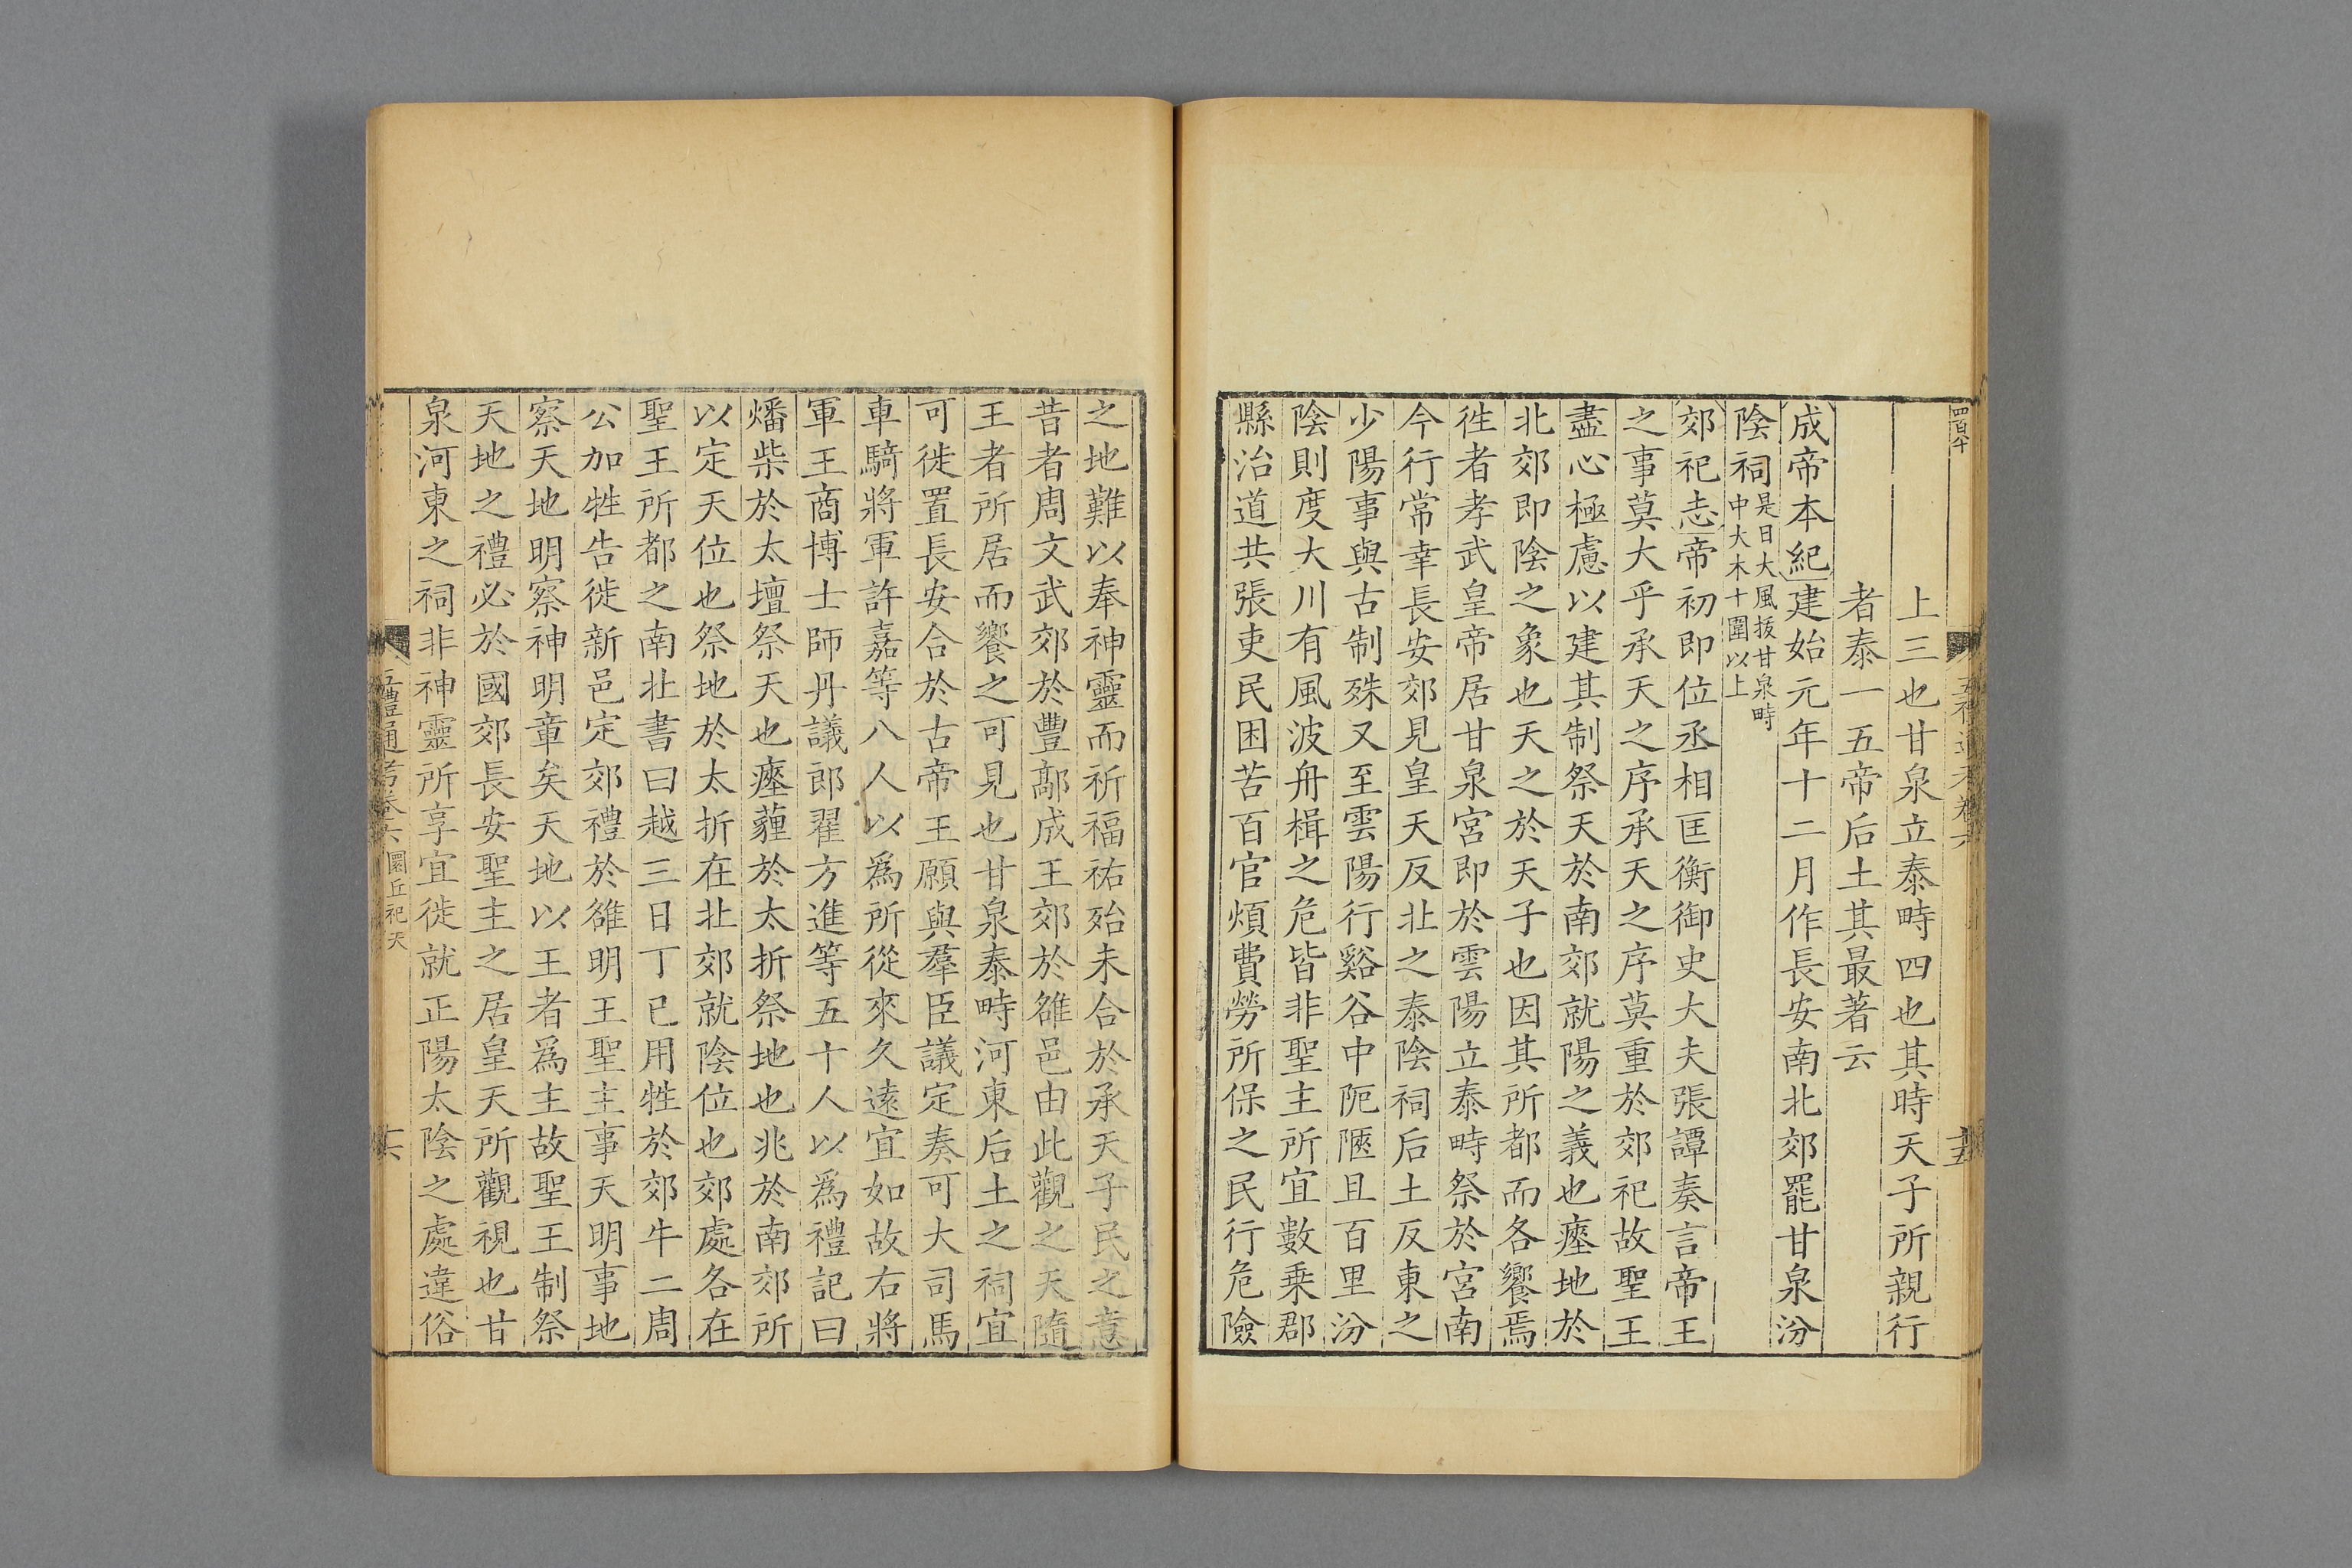 四百十
五禮通考卷六
十五
上三也甘泉立泰畤四也其時天子所親行
者泰一五帝后土其最著云
成帝本紀建始元年十二月作長安南北郊罷甘泉汾
陰祠是日大風拔甘泉畤中大木十圍以上
郊祀志帝初即位丞相匡衡御史大夫張譚奏言帝王
之事莫大乎承天之序承天之序莫重於郊祀故聖王
盡心極慮以建其制祭天於南郊就陽之義也瘞地於
北郊即陰之象也天之於天子也因其所都而各饗焉
徃者孝武皇帝居甘泉宮即於雲陽立泰畤祭於宮南
今行常幸長安郊見皇天反北之泰陰祠后土反東之
少陽事與古制殊又至雲陽行谿谷中阨陿且百里汾
陰則度大川有風波舟楫之危皆非聖主所宜數乗郡
縣治道共張吏民困苦百官煩費勞所保之民行危險
之地難以奉神靈而祈福祐殆未合於承天子民之意
昔者周文武郊於豐鄗成王郊於雒邑由此觀之天隨
王者所居而饗之可見也甘泉泰畤河東后土之祠宜
可徙置長安合於古帝王願與羣臣議定奏可大司馬
車騎將軍許嘉等八人以爲所從來久遠宜如故右將
軍王商博士師丹議郎翟方進等五十人以爲禮記曰
燔柴於太壇祭天也瘞薶於太折祭地也兆於南郊所
以定天位也祭地於太折在北郊就陰位也郊處各在
聖王所都之南北書曰越三日丁巳用牲於郊牛二周
公加牲告徙新邑定郊禮於雒明王聖主事天明事地
察天地明察神明章矣天地以王者爲主故聖王制祭
天地之禮必於國郊長安聖主之居皇天所觀視也甘
泉河東之祠非神靈所享宜徙就正陽太陰之處違俗
五禮通考卷六 圜丘祀天
十六